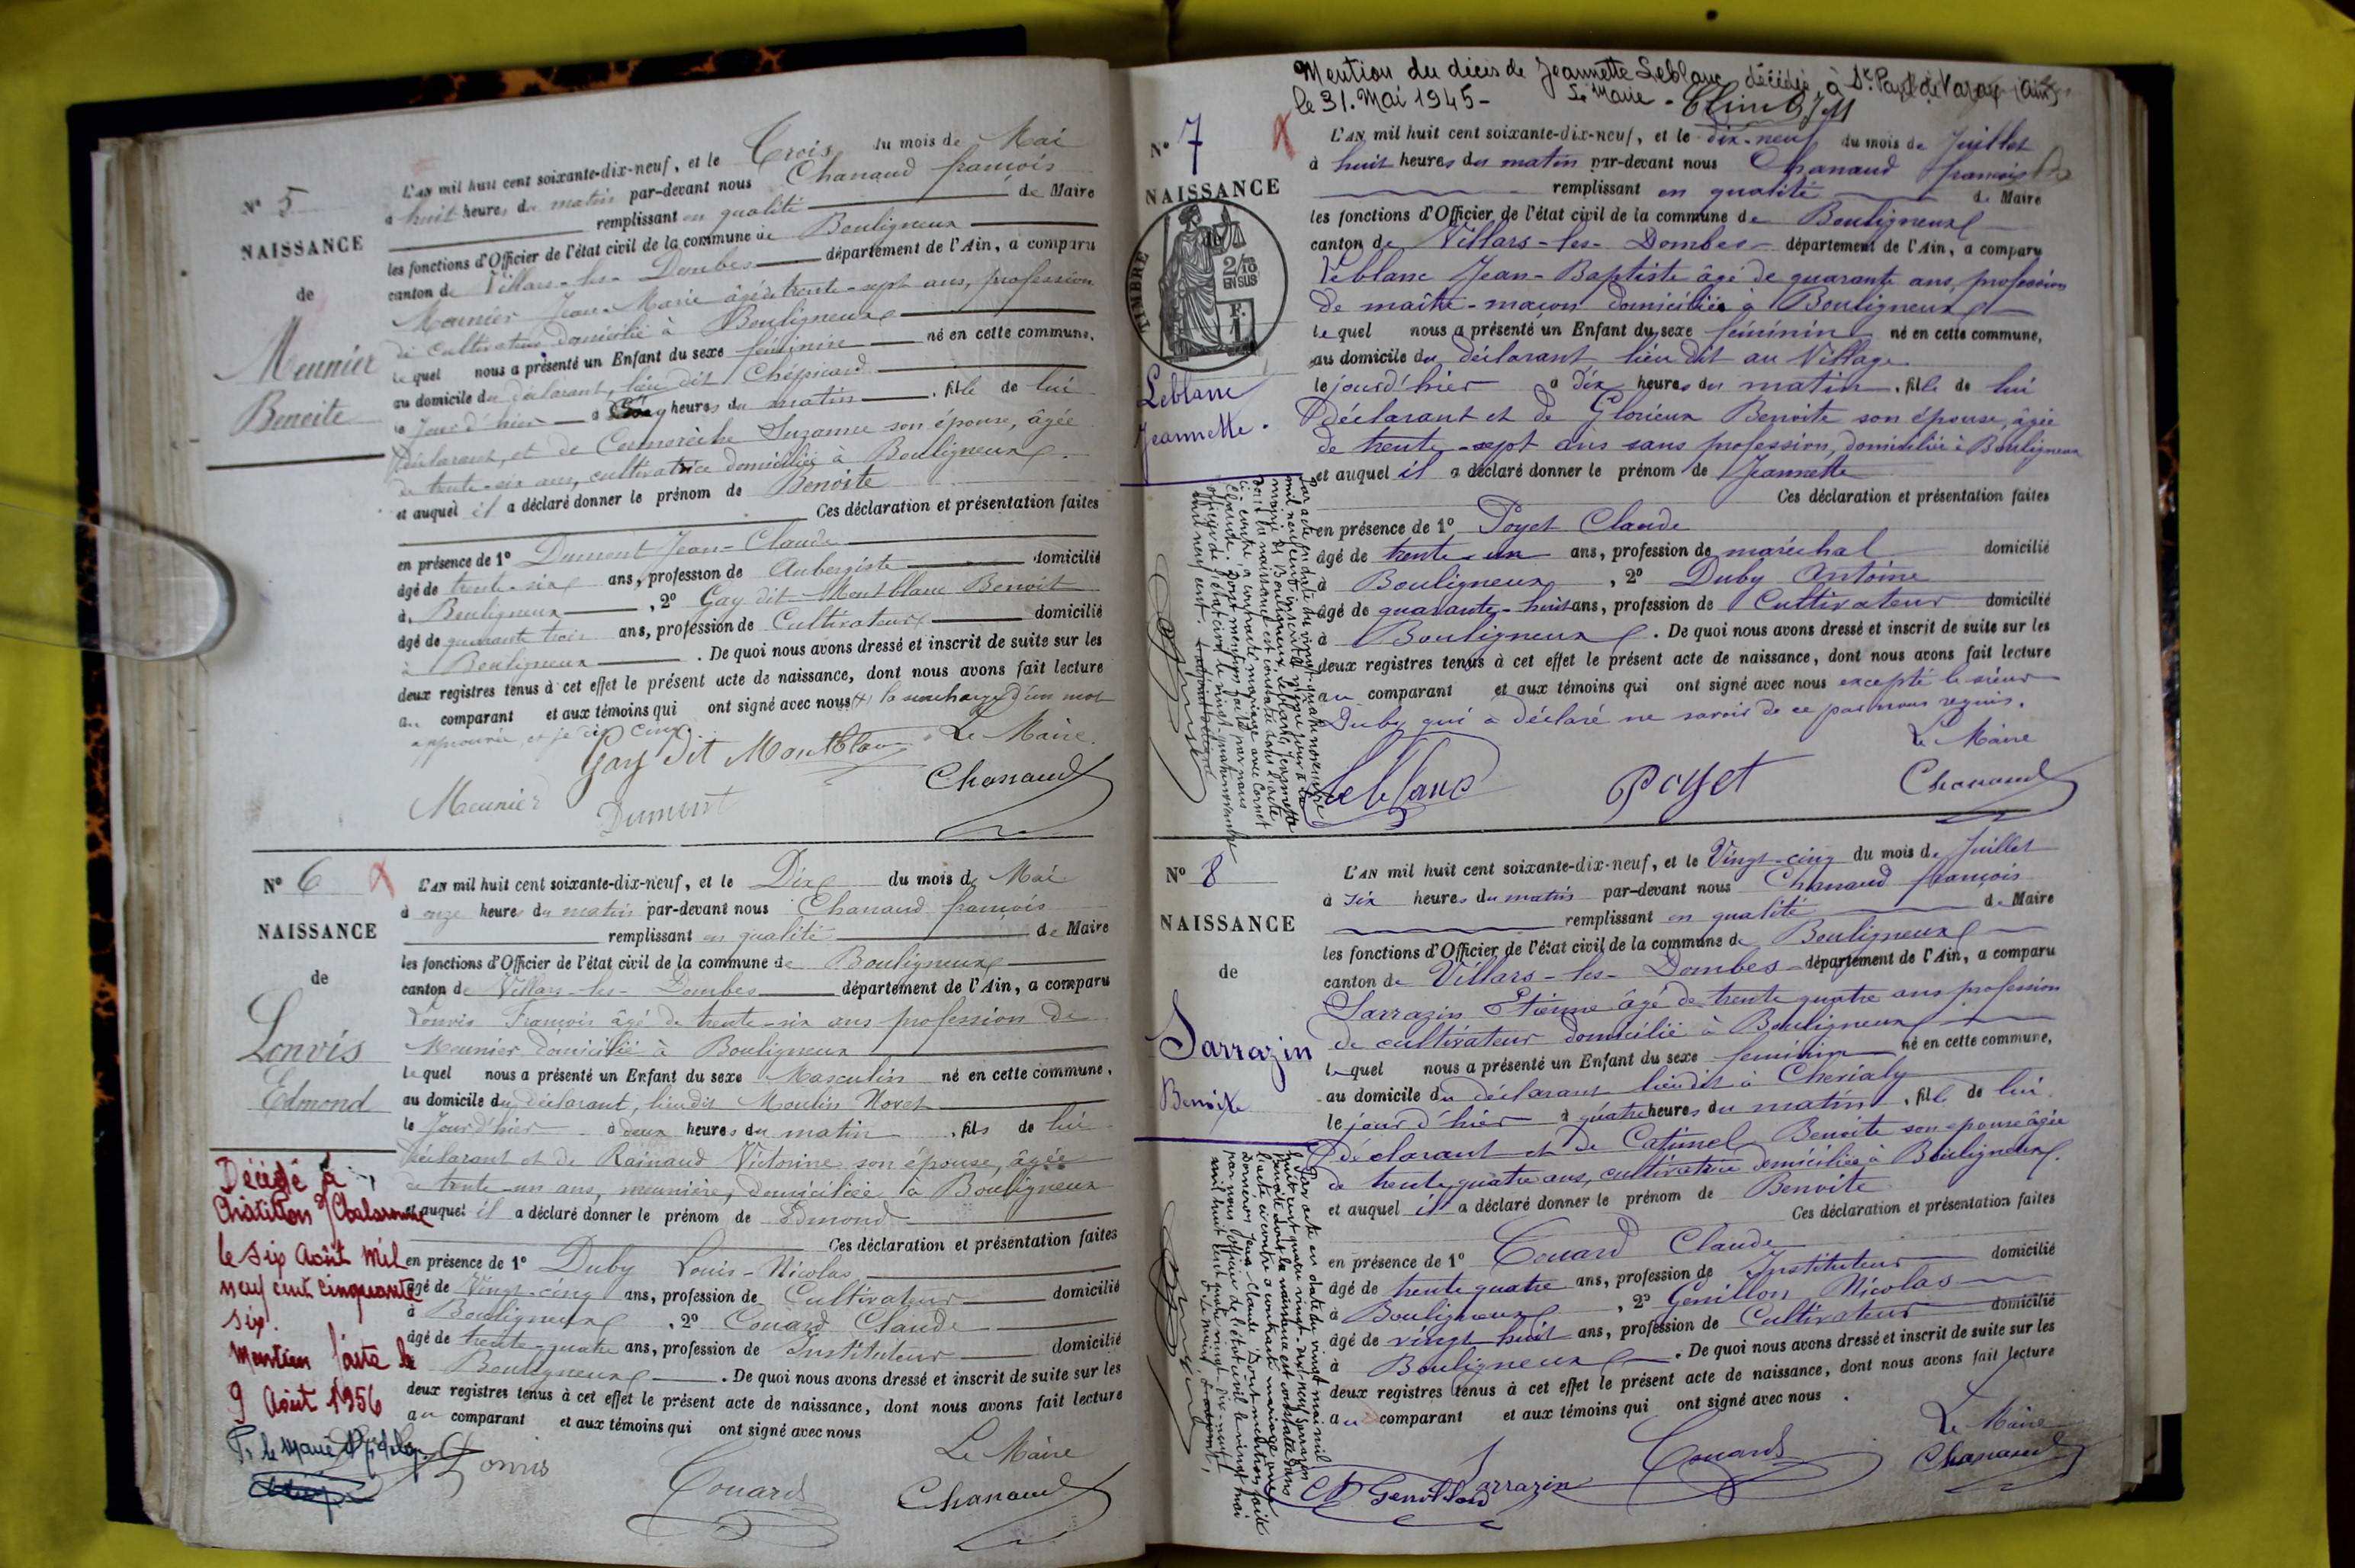 N° 5
NAISSANCE
de
Meunier
Benoite
L'AN mil huit cent soixante-dix-neuf, et le Trois du mois de Mai
à huit heures du matin par-devant nous Chanaud françois
remplissant en qualité de Maire
les fonctions d'Officier de l'état civil de la commune de Bouligneux
canton de Villars-les-Dombes département de l'Ain, a comparu
Meunier Jean-Marie âgé de trente-sept ans, profession
de cultivateur domicilié à Bouligneux
lequel nous a présenté un Enfant du sexe féminin né en cette commune,
au domicile du déclarant, lieu dit
le jour d'hier à heures du matin, fille de lui
déclarant, et de Suzanne son épouse, âgée
de trente-six ans, cultivatrice domiciliée à Bouligneux.
et auquel il a déclaré donner le prénom de Benoite
Ces déclaration et présentation faites
en présence de 1° Dumont Jean-Claude
âgé de trente-six ans, profession de Aubergiste domicilié
à Bouligneux, 2° Gay dit Montblanc Benoit
âgé de quarante trois ans, profession de Cultivateur domicilié
à Bouligneux. De quoi nous avons dressé et inscrit de suite sur les
deux registres tenus à cet effet le présent acte de naissance, dont nous avons fait lecture
au comparant et aux témoins qui ont signé avec nous (+) la surcharge d'un mot
approuvée, et je dis cinq
Gay dit Montblanc Le Maire
Meunier Dumont Chanaud
N° 6
NAISSANCE
de
Lonvis
Edmond
L'AN mil huit cent soixante-dix-neuf, et le Dix du mois de Mai
à onze heures du matin par-devant nous Chanaud françois
remplissant en qualité de Maire
les fonctions d'Officier de l'état civil de la commune de Bouligneux
canton de Villars-les-Dombes département de l'Ain, a comparu
Lonvis François âgé de trente-six ans profession de
Meunier domicilié à Bouligneux
lequel nous a présenté un Enfant du sexe Masculin né en cette commune,
au domicile du déclarant, lieu dit Moulin Novet
le Jour d'hier à deux heures du matin, fils de lui
déclarant et de Rainaud Victorine son épouse, âgée
de trente-un ans, meunière, domiciliée à Bouligneux
et auquel il a déclaré donner le prénom de Edmond
Ces déclaration et présentation faites
en présence de 1° Duby Louis-Nicolas
âgé de Vingt-cinq ans, profession de Cultivateur domicilié
à Bouligneux, 2° Couard Claude
âgé de trente-quatre ans, profession de Instituteur domicilié
à Bouligneux. De quoi nous avons dressé et inscrit de suite sur les
deux registres tenus à cet effet le présent acte de naissance, dont nous avons fait lecture
au comparant et aux témoins qui ont signé avec nous
Le Maire
Lonvis Couard Chanaud
Décédé à
Châtillon s/Chalaronne
le six Août mil
neuf cent cinquante
six.
Mention faite le
9 Août 1956
Pr le Maire
Mention du décès de Jeannette Leblanc décédée à St Paul de Varax (Ain)
le 31. Mai 1945 - Le Maire
N° 7
NAISSANCE
TIMBRE
2/10
EN SUS
Leblanc
Jeannette.
L'AN mil huit cent soixante-dix-neuf, et le dix-neuf du mois de Juillet
à huit heures du matin par-devant nous Chanaud françois
remplissant en qualité de Maire
les fonctions d'Officier de l'état civil de la commune de Bouligneux
canton de Villars-les-Dombes département de l'Ain, a comparu
Leblanc Jean-Baptiste âgé de quarante ans, profession
de maître-maçon domicilié à Bouligneux
lequel nous a présenté un Enfant du sexe féminin né en cette commune,
au domicile du déclarant lieu dit au Village
le jour d'hier à dix heures du matin, fille de lui
déclarant et de Glorieux Benoite son épouse, âgée
de trente-sept ans sans profession, domiciliée à Bouligneux
et auquel il a déclaré donner le prénom de Jeannette
Ces déclaration et présentation faites
en présence de 1° Poyet Claude
âgé de trente-un ans, profession de maréchal domicilié
à Bouligneux, 2° Duby Antoine
âgé de quarante-huit ans, profession de Cultivateur domicilié
à Bouligneux. De quoi nous avons dressé et inscrit de suite sur les
deux registres tenus à cet effet le présent acte de naissance, dont nous avons fait lecture
au comparant et aux témoins qui ont signé avec nous excepté le sieur
Duby qui a déclaré ne savoir de ce par nous requis.
Le Maire
Leblanc Poyet Chanaud
Par acte en date du vingt-quatre novembre
mil neuf cent, inscrit le même jour à la
mairie de Bouligneux, Leblanc Jeannette
dont la naissance est constatée dans l'acte
ci-contre, a contracté mariage avec Cornet
Claude. Dont mention faite par nous
officier de l'état civil le vingt-quatre novembre
mil neuf cent.
N° 8
NAISSANCE
de
Sarrazin
Benoite
L'AN mil huit cent soixante-dix-neuf, et le Vingt-cinq du mois de Juillet
à six heures du matin par-devant nous Chanaud françois
remplissant en qualité de Maire
les fonctions d'Officier de l'état civil de la commune de Bouligneux
canton de Villars-les-Dombes département de l'Ain, a comparu
Sarrazin Etienne âgé de trente quatre ans profession
de cultivateur domicilié à Bouligneux
lequel nous a présenté un Enfant du sexe féminin né en cette commune,
au domicile du déclarant lieu dit à
le jour d'hier à quatre heures du matin, fille de lui
déclarant et de Catimel Benoite son épouse âgée
de trente quatre ans, cultivatrice domiciliée à Bouligneux.
et auquel il a déclaré donner le prénom de Benoite
Ces déclaration et présentation faites
en présence de 1° Couard Claude
âgé de trente quatre ans, profession de Instituteur domicilié
à Bouligneux, 2° Genillon Nicolas
âgé de vingt huit ans, profession de Cultivateur domicilié
à Bouligneux. De quoi nous avons dressé et inscrit de suite sur les
deux registres tenus à cet effet le présent acte de naissance, dont nous avons fait lecture
au comparant et aux témoins qui ont signé avec nous.
Le Maire
Genillon Sarrazin Couard Chanaud
Par acte en date du vingt mai mil
huit cent quatre vingt-dix-neuf Sarrazin
Benoite dont la naissance est constatée dans
l'acte ci-contre a contracté mariage avec
Jean-Claude. Dont mention faite
par nous officier de l'état civil le vingt mai
mil huit cent quatre vingt-dix-neuf